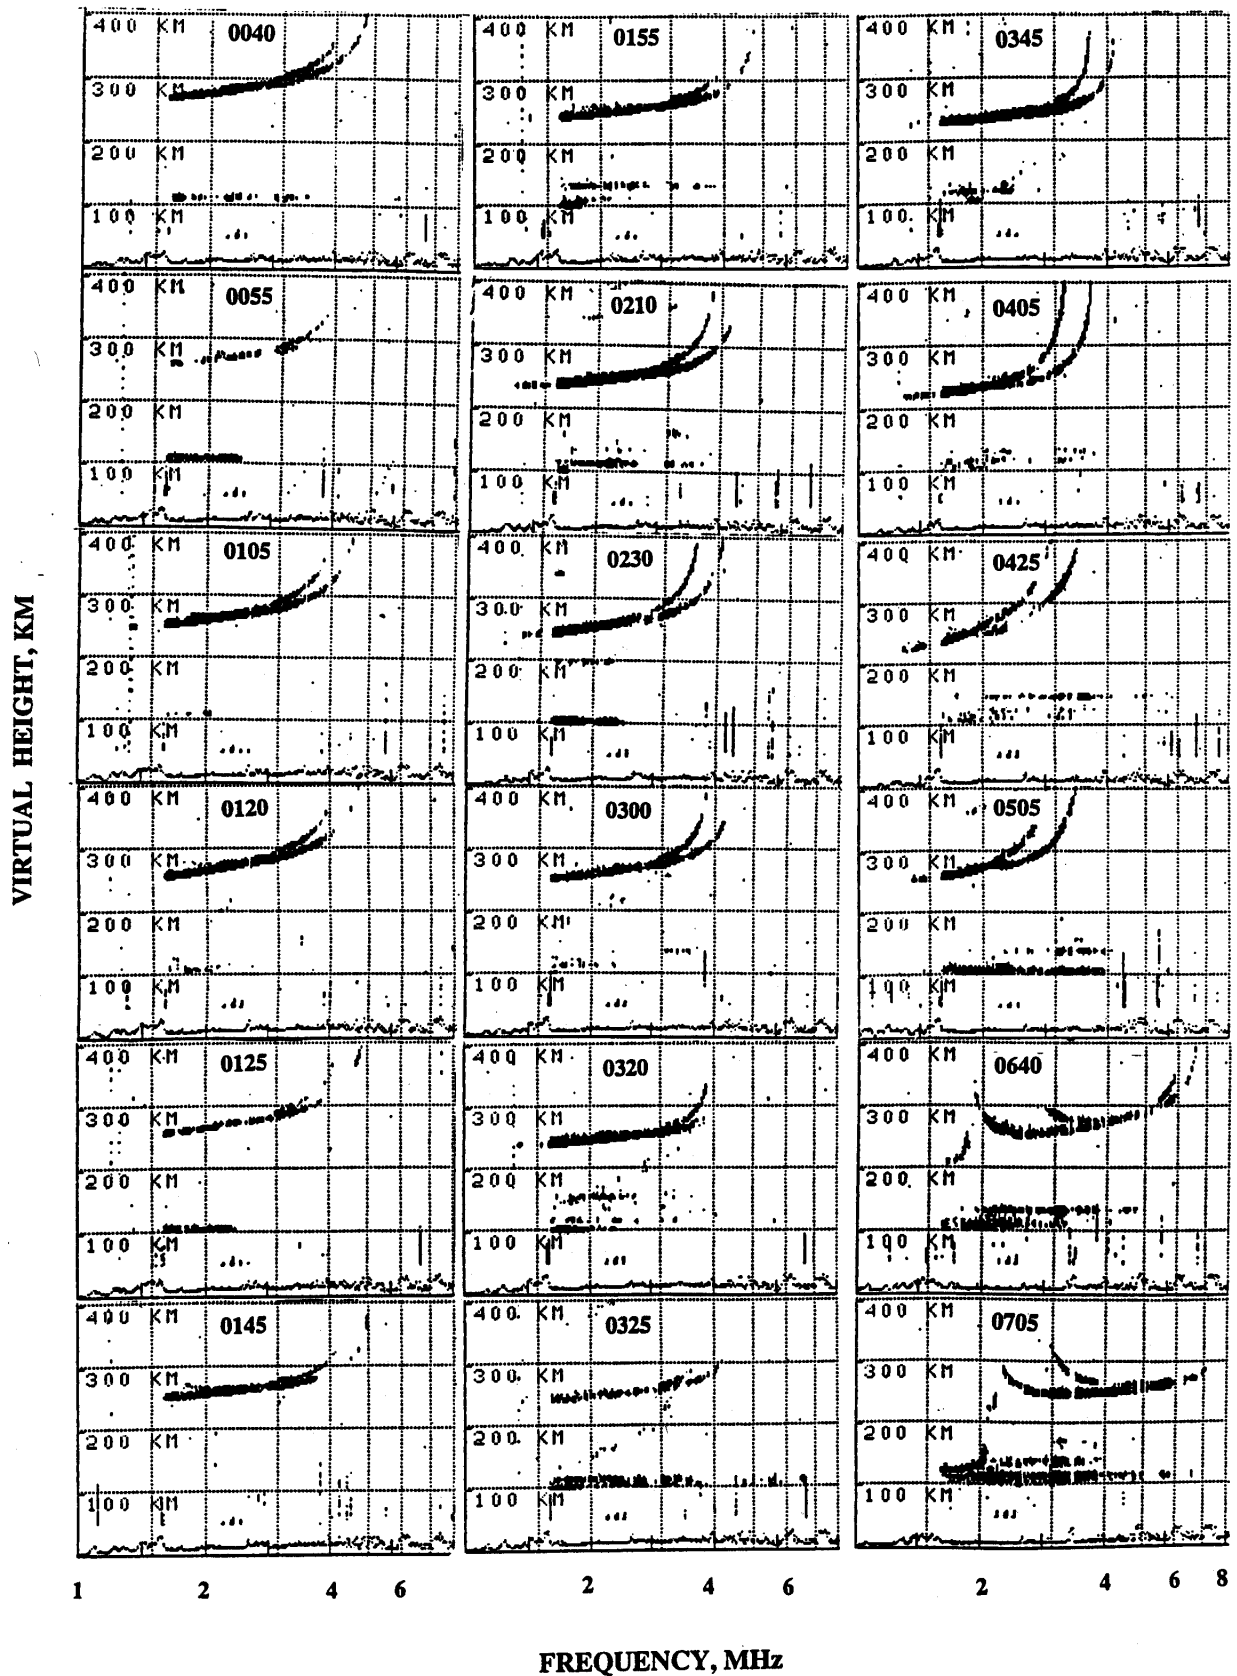 400 KM 0040
300 KM
200 KM
100 KM
400 KM 0155
300 KM
200 KM
100 KM
400 KM 0345
300 KM
200 KM
100 KM
400 KM 0055
300 KM
200 KM
100 KM
400 KM 0210
300 KM
200 KM
100 KM
400 KM 0405
300 KM
200 KM
100 KM
400 KM 0105
300 KM
200 KM
100 KM
400 KM 0230
300 KM
200 KM
100 KM
400 KM 0425
300 KM
200 KM
100 KM
400 KM 0120
300 KM
200 KM
100 KM
400 KM 0300
300 KM
200 KM
100 KM
400 KM 0505
300 KM
200 KM
100 KM
400 KM 0125
300 KM
200 KM
100 KM
400 KM 0320
300 KM
200 KM
100 KM
400 KM 0640
300 KM
200 KM
100 KM
400 KM 0145
300 KM
200 KM
100 KM
400 KM 0325
300 KM
200 KM
100 KM
400 KM 0705
300 KM
200 KM
100 KM
VIRTUAL HEIGHT, KM
1 2 4 6 2 4 6 2 4 6 8
FREQUENCY, MHz